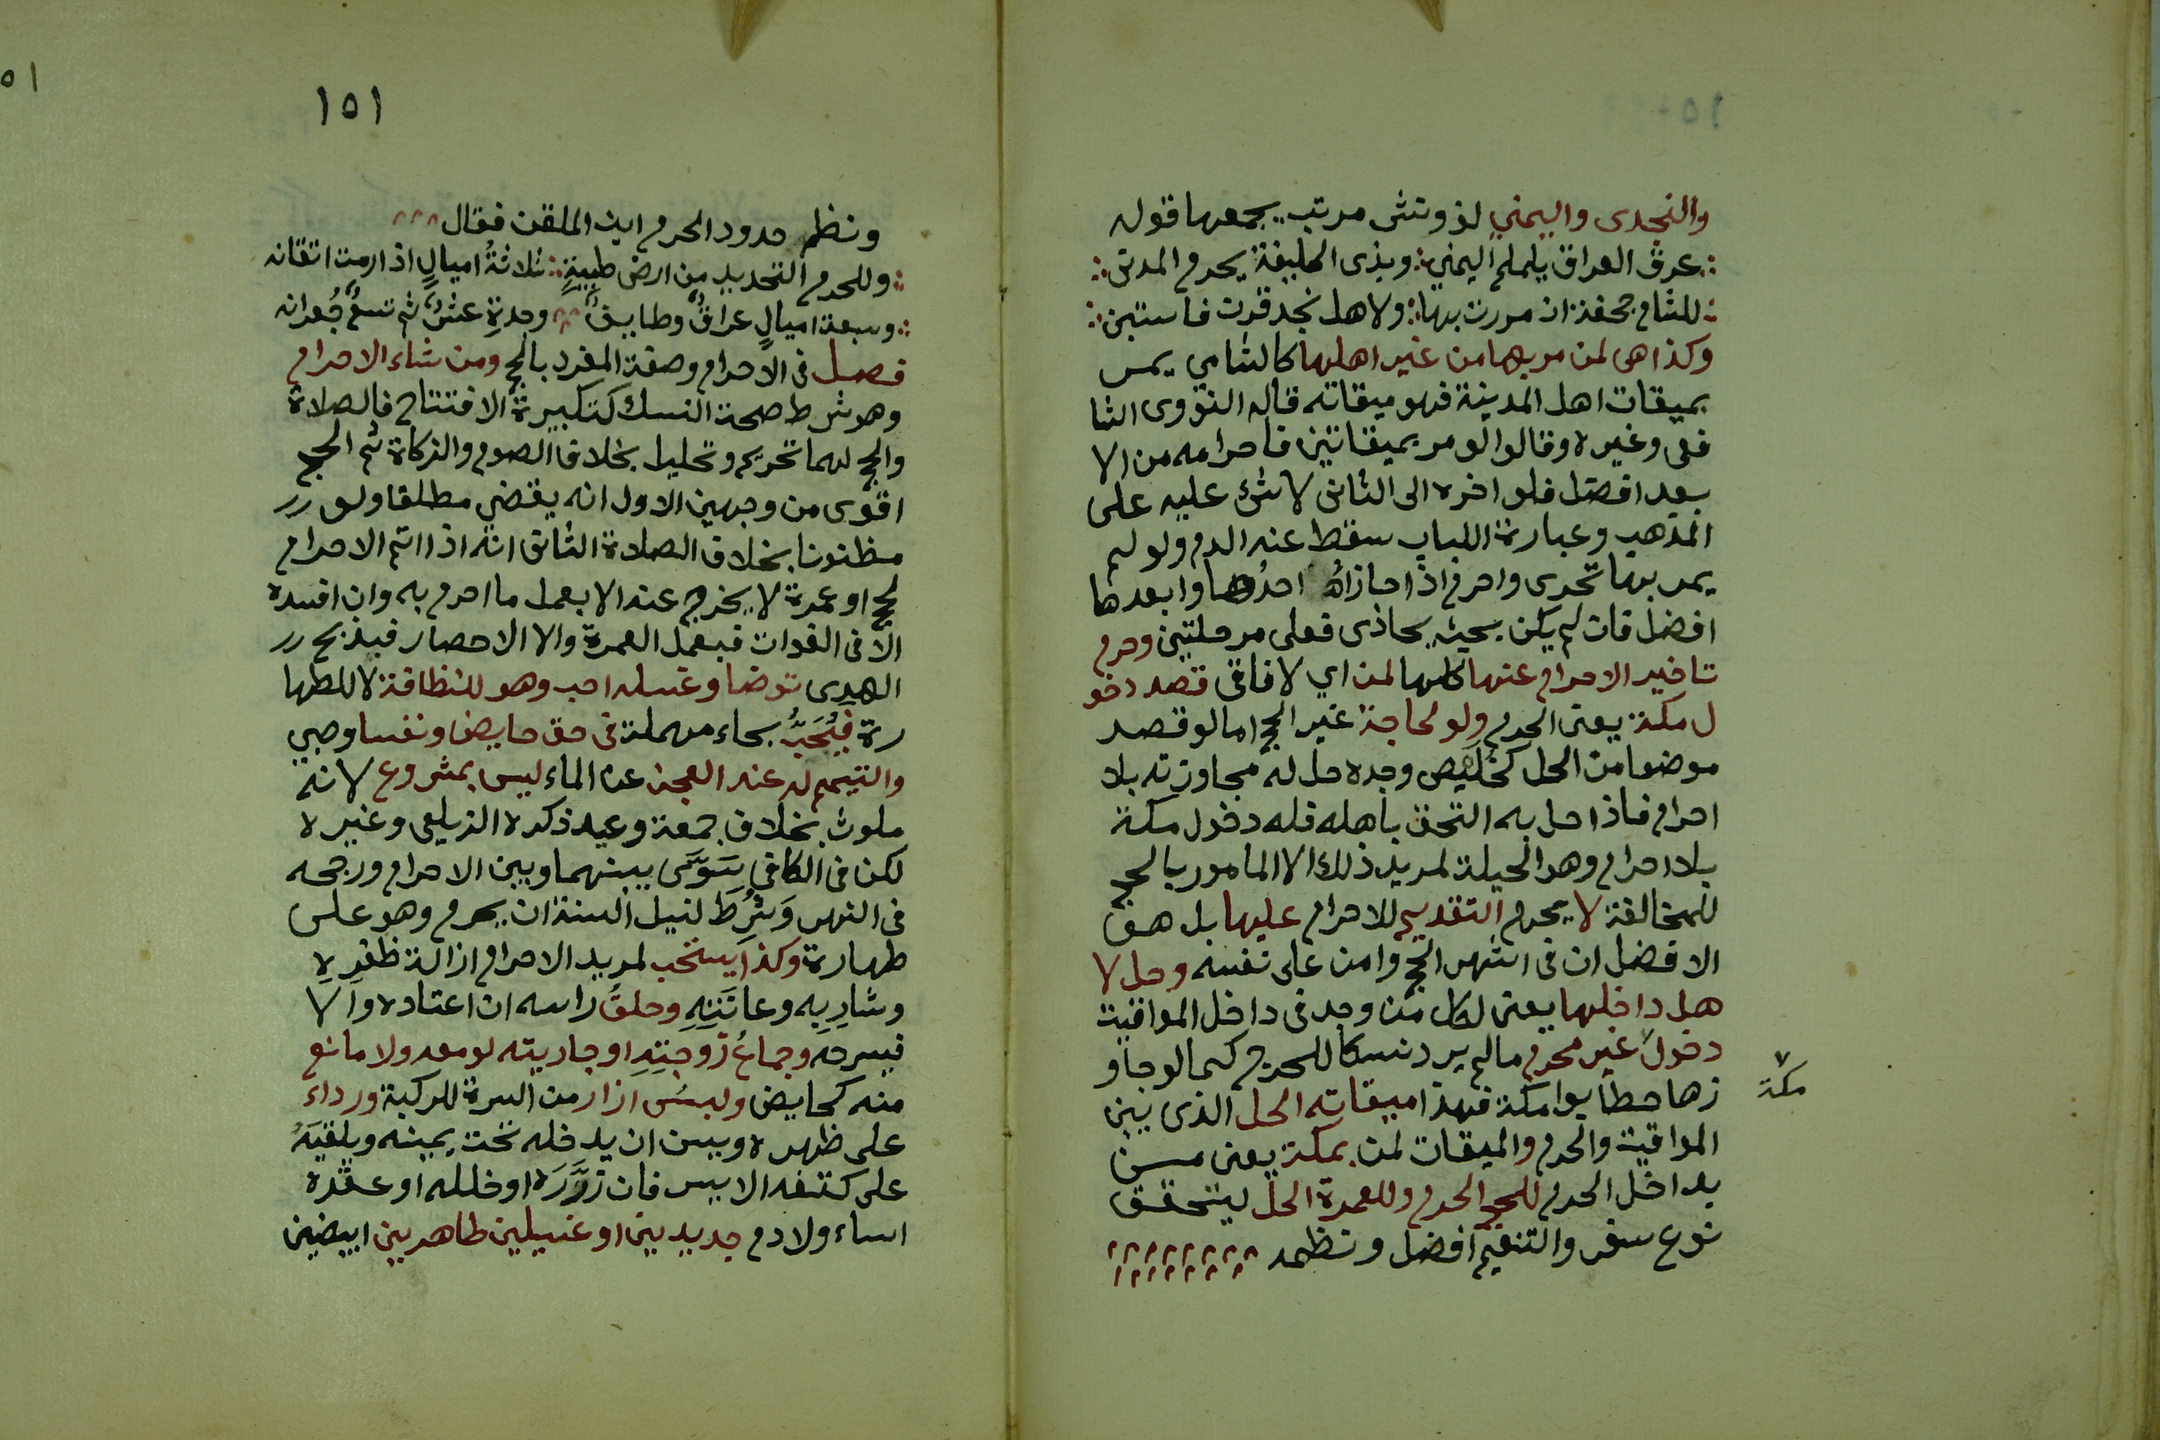 والنجدى واليمني لف ونشر مرتب يجمعها قوله
عرق العراق يلملم اليمني وبذى الحليفة يحرم المدنى
للشام جحفة ان مررت بها ولاهل نجد قرن فاستبن
وكذا هى لمن مر بها من غير اهلها كالشامي يمر
بميقات اهل المدينة فهو ميقاته قاله النووى الشا
فعى وغيره وقالوا لو مر بميقاتين فاحرامه من الا
بعد افضل فلو اخره الى الثانى لا شئ عليه على
المذهب وعبارة اللباب سقط عنه الدم ولو لم
يمر بها تحرى واحرم اذا حازاه احدها وابعدها
افضل فان لم يكن بحيث يحاذى فعلى مرحلتين وحرم
تاخير الاحرام عنها كلها لمن اي لافاقى قصد دخو
ل مكة يعنى الحرم ولو لحاجة غير الحج اما لو قصد
موضعا من الحل كخليص وجده حل له مجاوزته بلا
احرام فاذا حل به التحق باهله فله دخول مكة
بلا احرام وهو الحيلة لمريد ذلك الا المامور بالحج
للمخالفة لا يحرم التقديم للاحرام عليها بل هو
الافضل ان فى اشهر الحج وامن على نفسه وحل لا
هل داخلها يعنى لكل من وجد فى داخل المواقيت
دخول غير محرم مالم يرد نسكا للحرج كما لو جاو
مكة
زها حطابوا مكة فهذا ميقاته الحل الذى بين
المواقيت والحرم والميقات لمن بمكة يعنى من
بداخل الحرم للحج الحرم وللعمرة الحل ليتحقق
نوع سفر والتنعيم افضل ونظمه
١٥١
ونظم حدود الحرم ابن الملقن فقال
وللحرم التحديد من ارض طيبة ثلاثة اميال اذا رمت اتقانه
وسبعة اميال عراق وطايف وجدة عشر ثم تسع جعرانه
فصل فى الاحرام وصفة المفرد بالحج ومن شاء الاحرام
وهو شرط صحة النسك كتكبيرة الافتتاح فالصلاة
والحج لهما تحريم وتحليل بخلاف الصوم والزكاة ثم الحج
اقوى من وجهين الاول انه يقضي مطلقا ولو
مظنونا بخلاف الصلاة الثانى انه اذا اتم الاحرام
لحج او عمرة لا يخرج عنه الا بعمل ما احرم به وان افسده
الا فى الفوات فبعمل العمرة والا الاحصار فبذبح
الهدى توضا وغسله احب وهو للنظافة لا للطها
رة فيحب بحاء مهملة فى حق حايض ونفسا وصبي
والتيمم له عند العجز عن الماء ليس بمشروع لانه
ملوث بخلاف جمعة وعيد ذكره الزيلعى وغيره
لكن فى الكافي سوى بينهما وبين الاحرام ورجحه
فى النهر وشرط لنيل السنة ان يحرم وهو على
طهارة وكذا يستحب لمريد الاحرام ازالة ظفره
وشاربه وعانته وحلق راسه ان اعتاده والا
فيسرحه وجماع زوجته او جاريته لو معه ولا مانع
منه كحايض ولبس ازار من السرة للركبة ورداء
على ظهره ويسن ان يدخله تحت يمينه ويلقيه
على كتفه الايسر فان زرره او خلله او عقده
اساء ولا دم جديدين او غسيلين طاهرين ابيضين